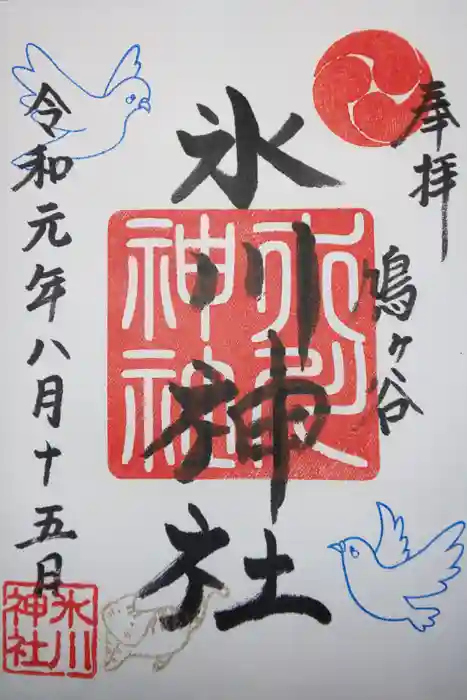 奉拝
鳩ヶ谷
氷川神社
氷川神社
令和元年八月十五日
氷川神社